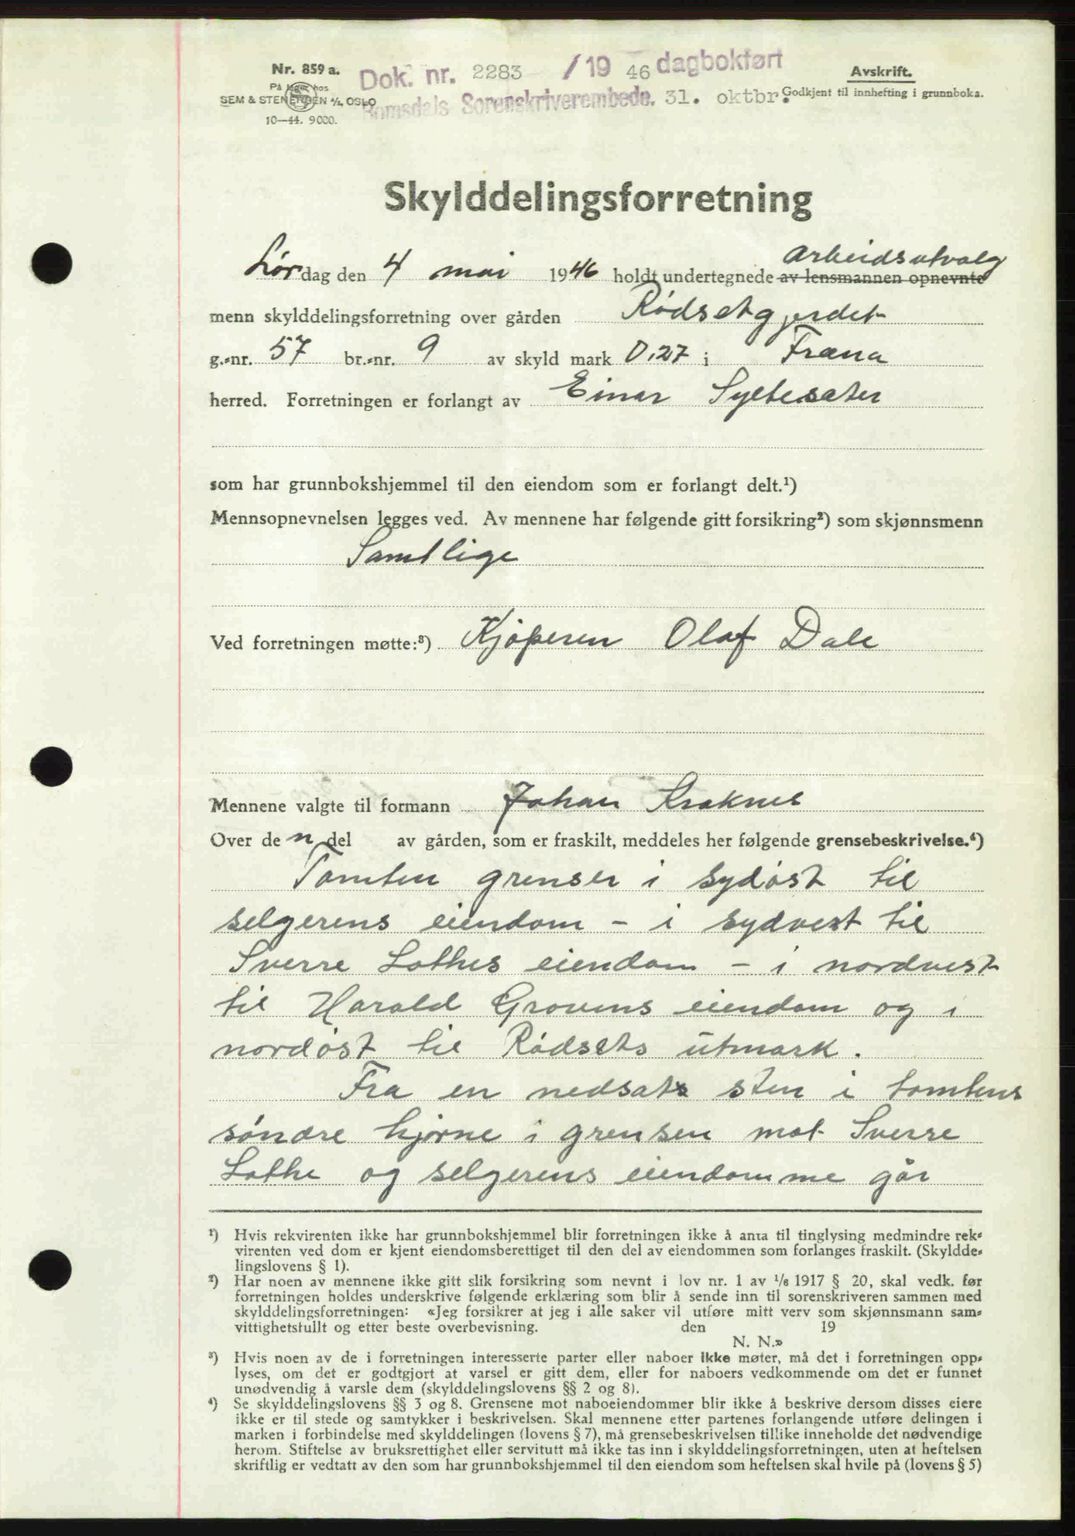 Nr. 859 a.
På lager hos
SEM & STENERSEN A/S, OSLO
10—44. 9000.
Dok. nr. 2283 / 19 46 dagbokført
Romsdals Sorenskriverembede. 31. oktbr.
Avskrift.
Godkjent til innhefting i grunnboka.
Skylddelingsforretning
Lørdag den 4 mai 1946 holdt undertegnede av lensmannen opnevnte Arbeidsutvalg
menn skylddelingsforretning over gården Rødsetgjerdet
g.-nr. 57 br.-nr. 9 av skyld mark 0,27 i Fræna
herred. Forretningen er forlangt av Einar Syltesæter
som har grunnbokshjemmel til den eiendom som er forlangt delt.¹)
Mennsopnevnelsen legges ved. Av mennene har følgende gitt forsikring²) som skjønnsmenn
Samtlige
Ved forretningen møtte:³) Kjøperen Olaf Dale
Mennene valgte til formann Johan Kraknes
Over de n del av gården, som er fraskilt, meddeles her følgende grensebeskrivelse.⁴)
Tomten grenser i sydøst til
selgerens eiendom – i sydvest til
Sverre Lothes eiendom – i nordvest
til Harald Grovens eiendom og i
nordøst til Rødsets utmark.
Fra en nedsatt sten i tomtens
søndre hjørne i grensen mot Sverre
Lothe og selgerens eiendomme går
¹) Hvis rekvirenten ikke har grunnbokshjemmel blir forretningen ikke å anta til tinglysing medmindre rek-
virenten ved dom er kjent eiendomsberettiget til den del av eiendommen som forlanges fraskilt. (Skyldde-
lingslovens § 1).
²) Har noen av mennene ikke gitt slik forsikring som nevnt i lov nr. 1 av ¹/₈ 1917 § 20, skal vedk. før
forretningen holdes underskrive følgende erklæring som blir å sende inn til sorenskriveren sammen med
skylddelingsforretningen: «Jeg forsikrer at jeg i alle saker vil utføre mitt verv som skjønnsmann sam-
vittighetsfullt og etter beste overbevisning. den 19
N. N.»
³) Hvis noen av de i forretningen interesserte parter eller naboer ikke møter, må det i forretningen opp-
lyses, om det er godtgjort at varsel er gitt dem, eller for naboers vedkommende om det er funnet
unødvendig å varsle dem (skylddelingslovens §§ 2 og 8).
⁴) Se skylddelingslovens §§ 3 og 8. Grensene mot naboeiendommer blir ikke å beskrive dersom disses eiere
ikke er til stede og samtykker i beskrivelsen. Skal mennene etter partenes forlangende utføre delingen i
marken i forbindelse med skylddelingen (lovens § 7), må grensebeskrivelsen tillike inneholde det nødvendige
herom. Stiftelse av bruksrettighet eller servitutt må ikke tas inn i skylddelingsforretningen, uten at heftelsen
skriftlig er vedtatt av den som har grunnbokshjemmel til den eiendom som heftelsen skal hvile på (lovens § 5)